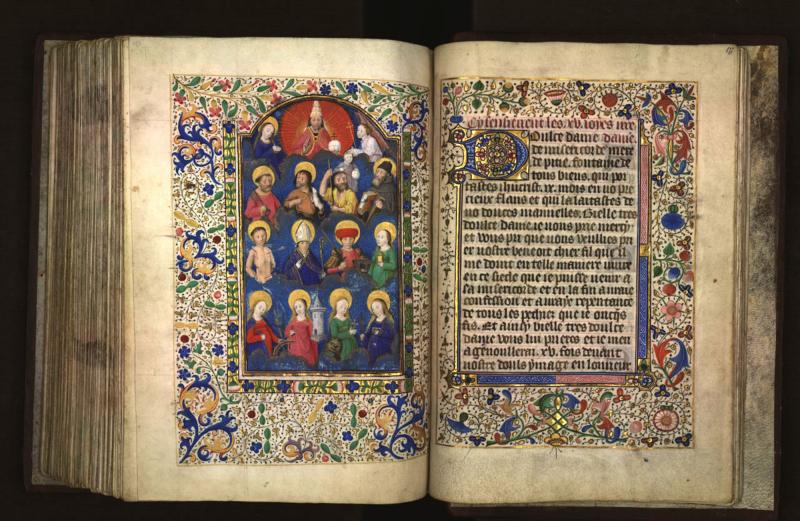 Cy sensievent les .xv. ioyes nre
Doulce dame dame
de misericorde mere
de pitie. fontaine de
tous biens. qui por
tastes ihucrist .ix. mois en vo pre
cieux flans et qui lalaitastes de
vo doulces mamelles. Bielle tres
doulce dame ie vous prie mercy
et vous pri que vous veullies pri
er vostre benoit chier fil que il
me doint en telle maniere vivre
en ce siecle que ie puisse venir a
sa misericorde et en la fin avoir
confession et avraye repentance
de tous les pechiez que ie oncqs
fis. Et ainsy bielle tres doulce
dame vous lui prieres et ie men
agenoulleray .xv. fois devant
vostre doulz ymage en lonneur